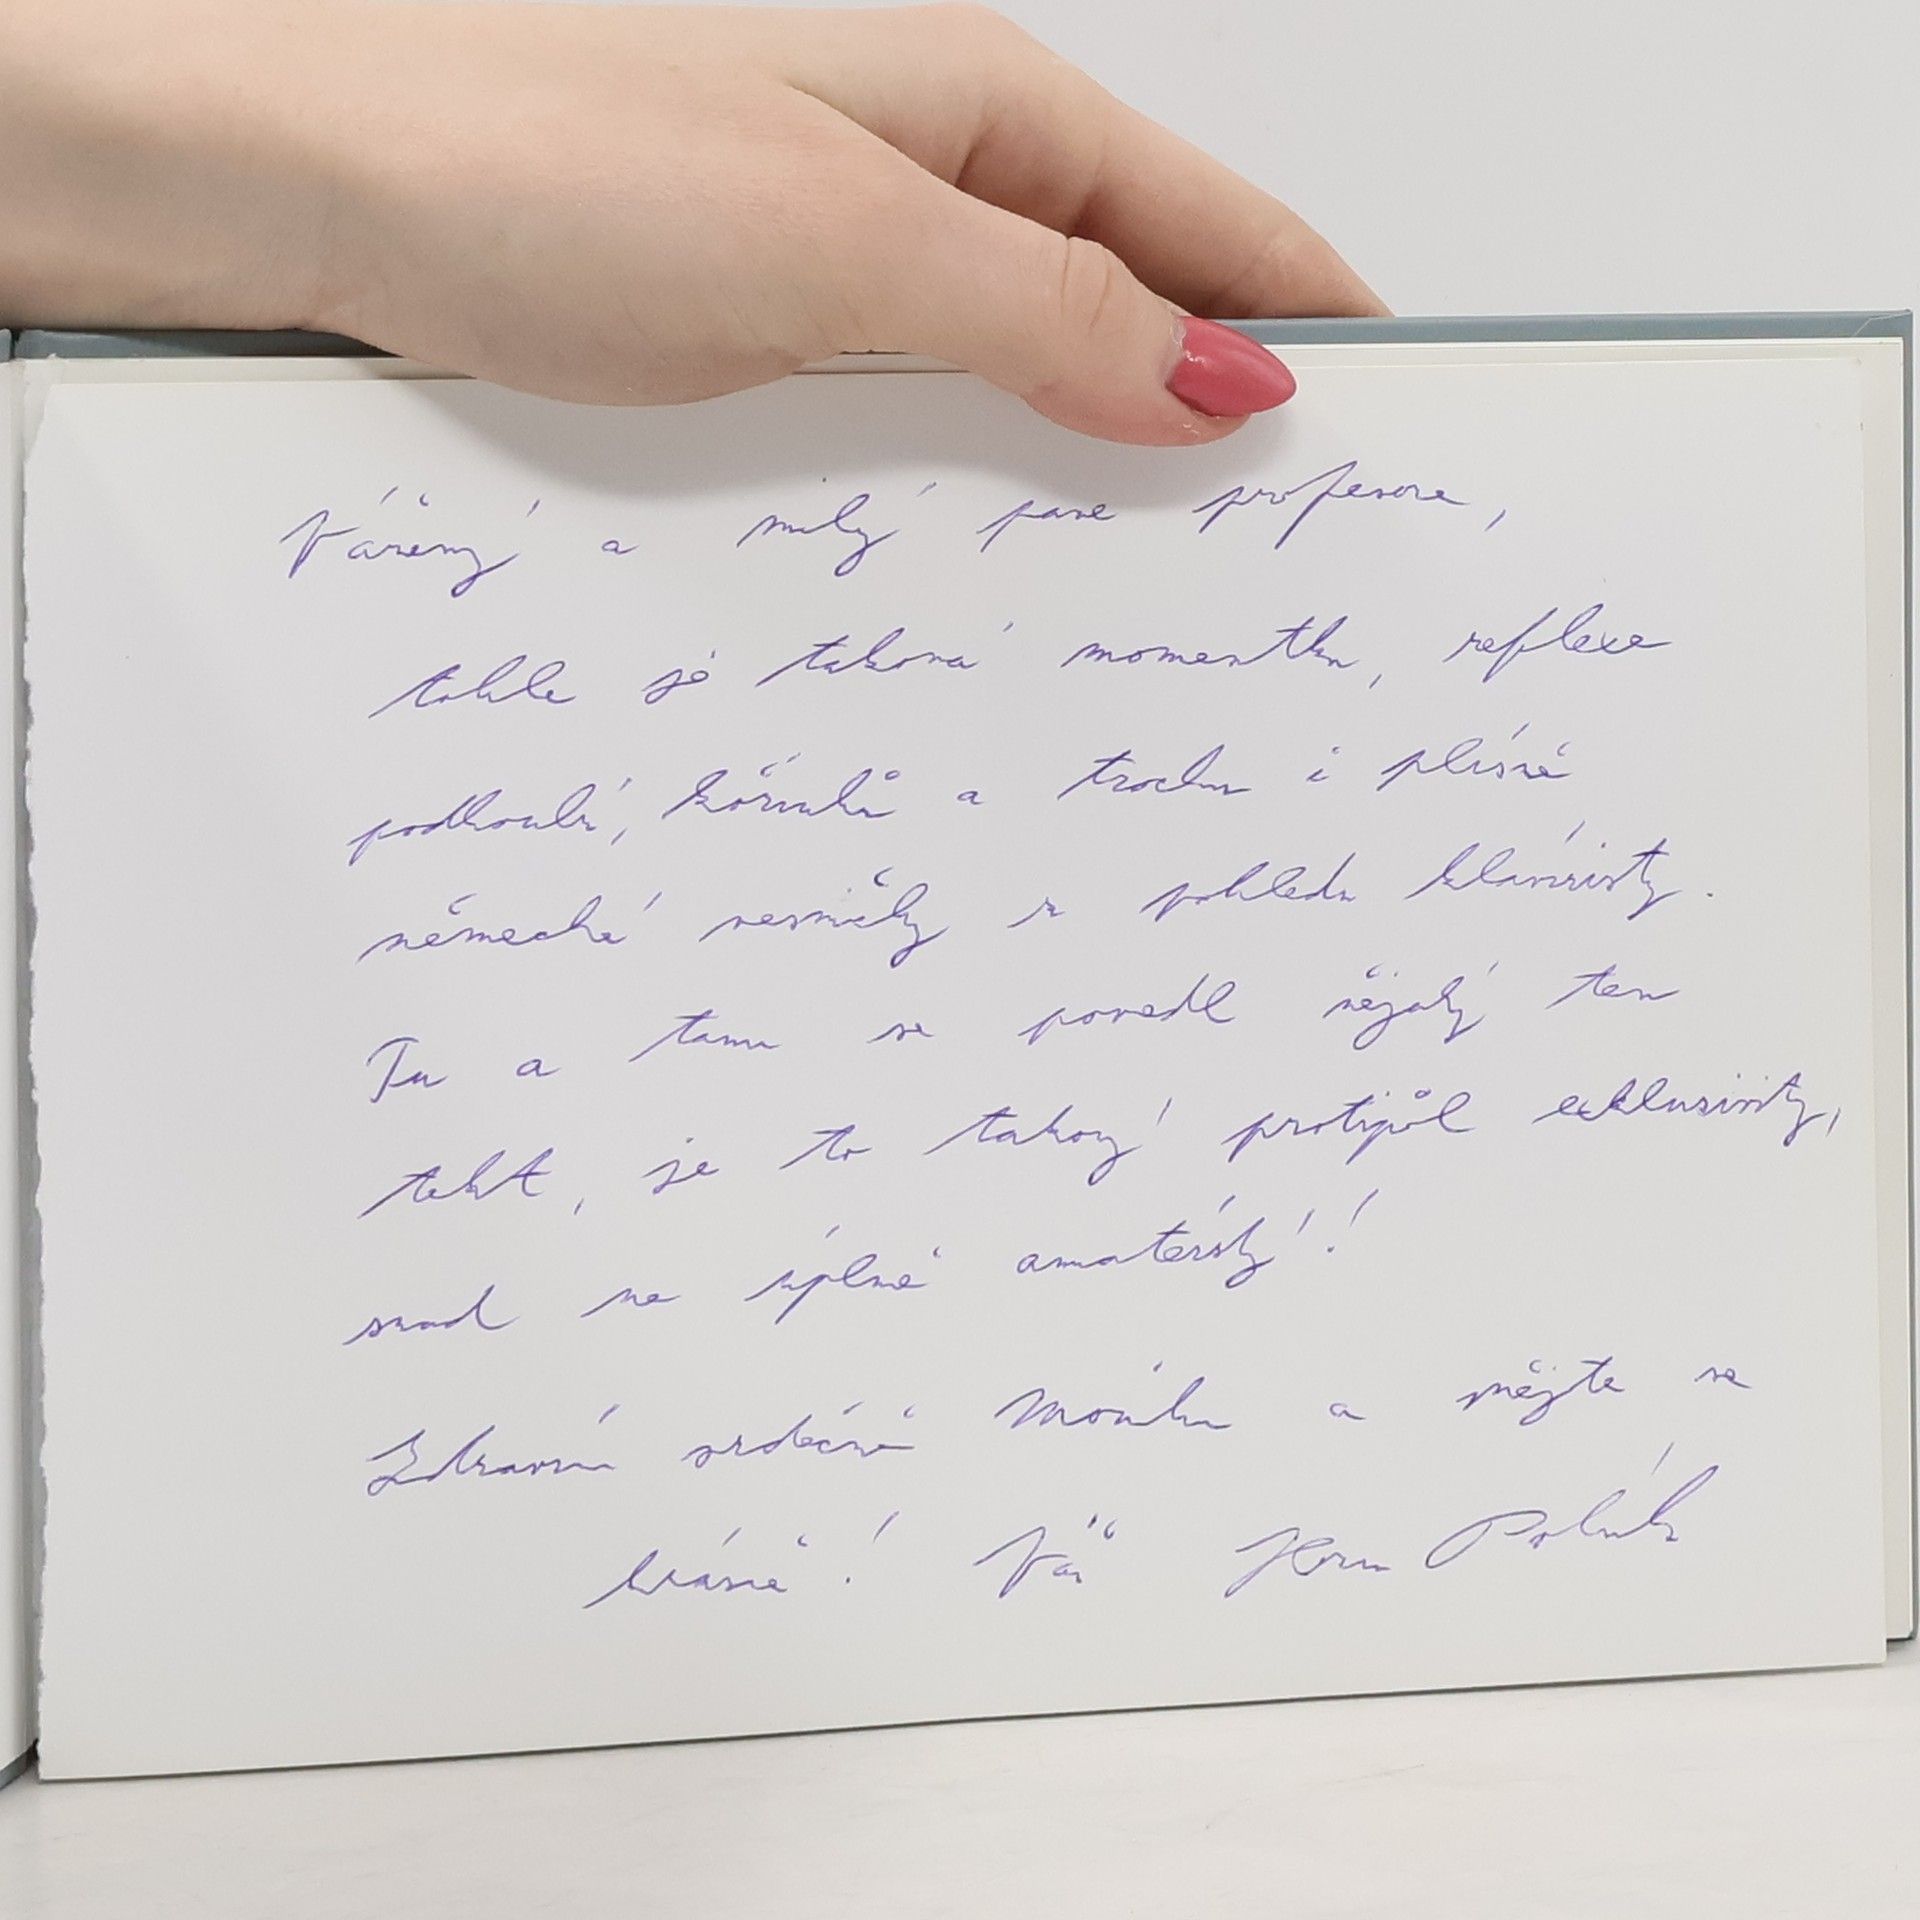 Vážený a milý pane profesore,
tohle je taková momentka, reflexe
podhoubí, kořínků a trochu i plísně
německé vesměly z pohledu klavíristy.
Tu a tam se povedl nějaký ten
tekt, je to takový protipól exklusivity,
snad ne úplně amatérský!
Zdravím srdečně Moniku a mějte se
krásně! Váš Polák